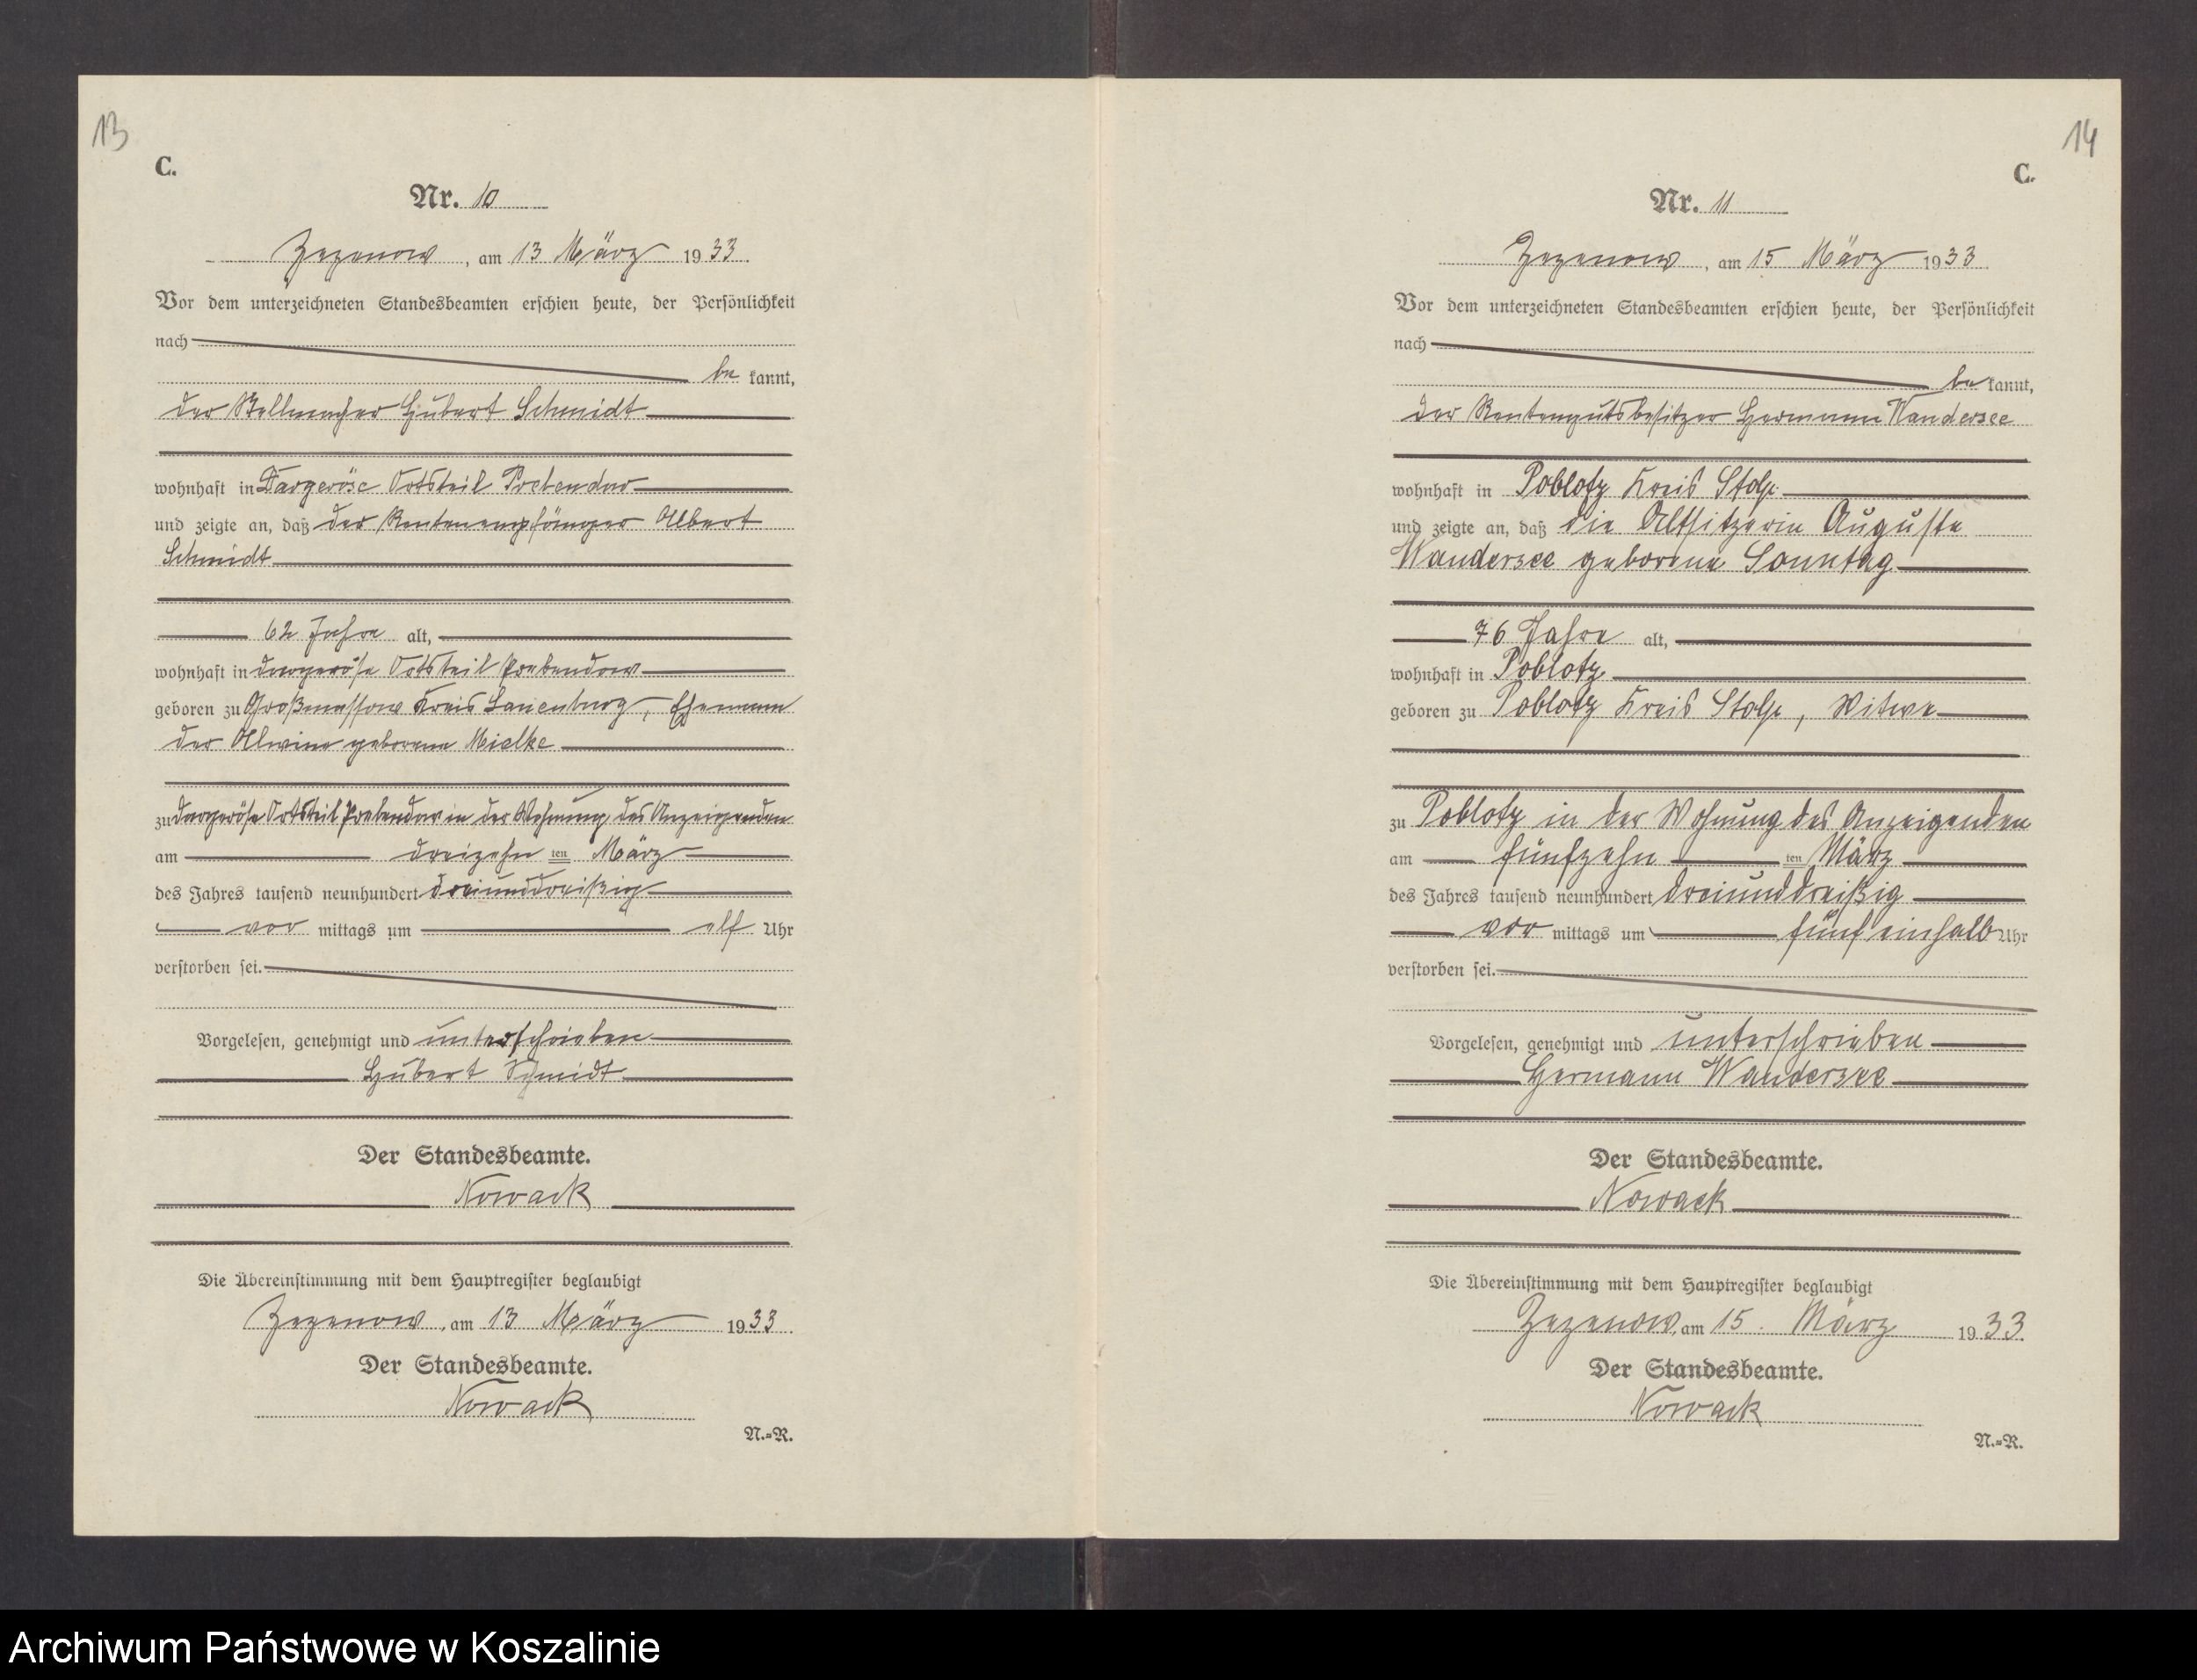 13
C.
Nr. 10
Zezenow, am 13 März 1933.
Vor dem unterzeichneten Standesbeamten erschien heute, der Persönlichkeit
nach
be kannt,
der Stellmacher Hubert Schmidt
wohnhaft in Dargeröse Ortsteil Prebendow
und zeigte an, daß der Rentenempfänger Albert
Schmidt
62 Jahre alt,
wohnhaft in Dargeröse Ortsteil Prebendow
geboren zu Großmassow Kreis Lauenburg, Ehemann
der Alwine geborene Mielke
zu Dargeröse Ortsteil Prebendow in der Wohnung des Anzeigenden
am dreizehn ten März
des Jahres tausend neunhundert dreiunddreißig
vor mittags um elf Uhr
verstorben sei.
Vorgelesen, genehmigt und unterschrieben
Hubert Schmidt
Der Standesbeamte.
Nowack
Die Übereinstimmung mit dem Hauptregister beglaubigt
Zezenow, am 13 März 1933.
Der Standesbeamte.
Nowack
N.=R.
14
C.
Nr. 11
Zezenow, am 15 März 1933
Vor dem unterzeichneten Standesbeamten erschien heute, der Persönlichkeit
nach
be kannt,
der Rentengutsbesitzer Hermann Wandersee
wohnhaft in Poblotz Kreis Stolp
und zeigte an, daß die Altsitzerin Auguste
Wandersee geborene Sonntag
76 Jahre alt,
wohnhaft in Poblotz
geboren zu Poblotz Kreis Stolp, Witwe
zu Poblotz in der Wohnung des Anzeigenden
am fünfzehn ten März
des Jahres tausend neunhundert dreiunddreißig
vor mittags um fünf einhalb Uhr
verstorben sei.
Vorgelesen, genehmigt und unterschrieben
Hermann Wandersee
Der Standesbeamte.
Nowack
Die Übereinstimmung mit dem Hauptregister beglaubigt
Zezenow, am 15. März 1933.
Der Standesbeamte.
Nowack
N.=R.
Archiwum Państwowe w Koszalinie